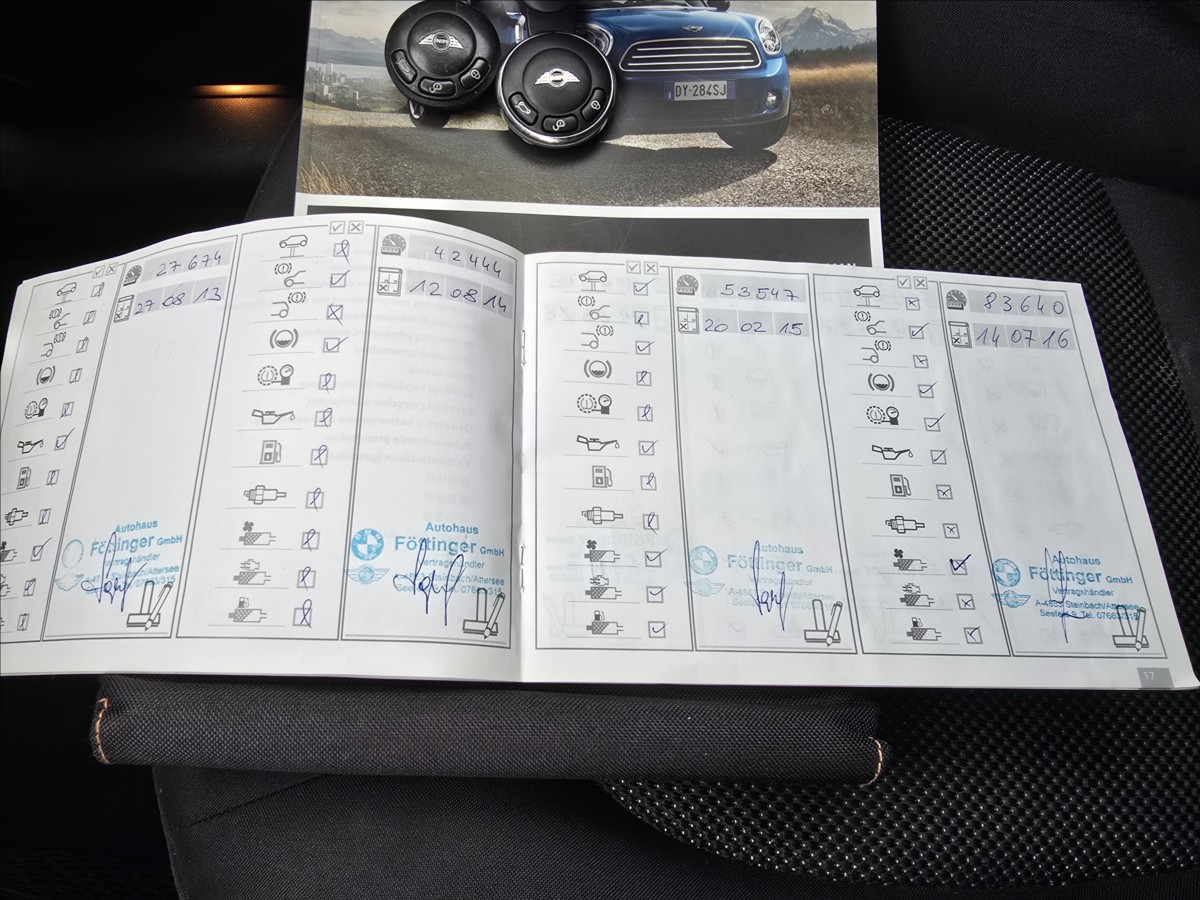 MINI
MINI
DY·284SJ
27 674
27 08 13
Autohaus
Föttinger GmbH
Vertragshändler
Steinbach/Attersee
42444
12 08 14
Autohaus
Föttinger GmbH
Vertragshändler
Steinbach/Attersee
53547
20 02 15
Autohaus
Föttinger GmbH
Vertragshändler
Steinbach/Attersee
83640
14 07 16
Autohaus
Föttinger GmbH
Vertragshändler
Steinbach/Attersee
Tel. 07663/315
17